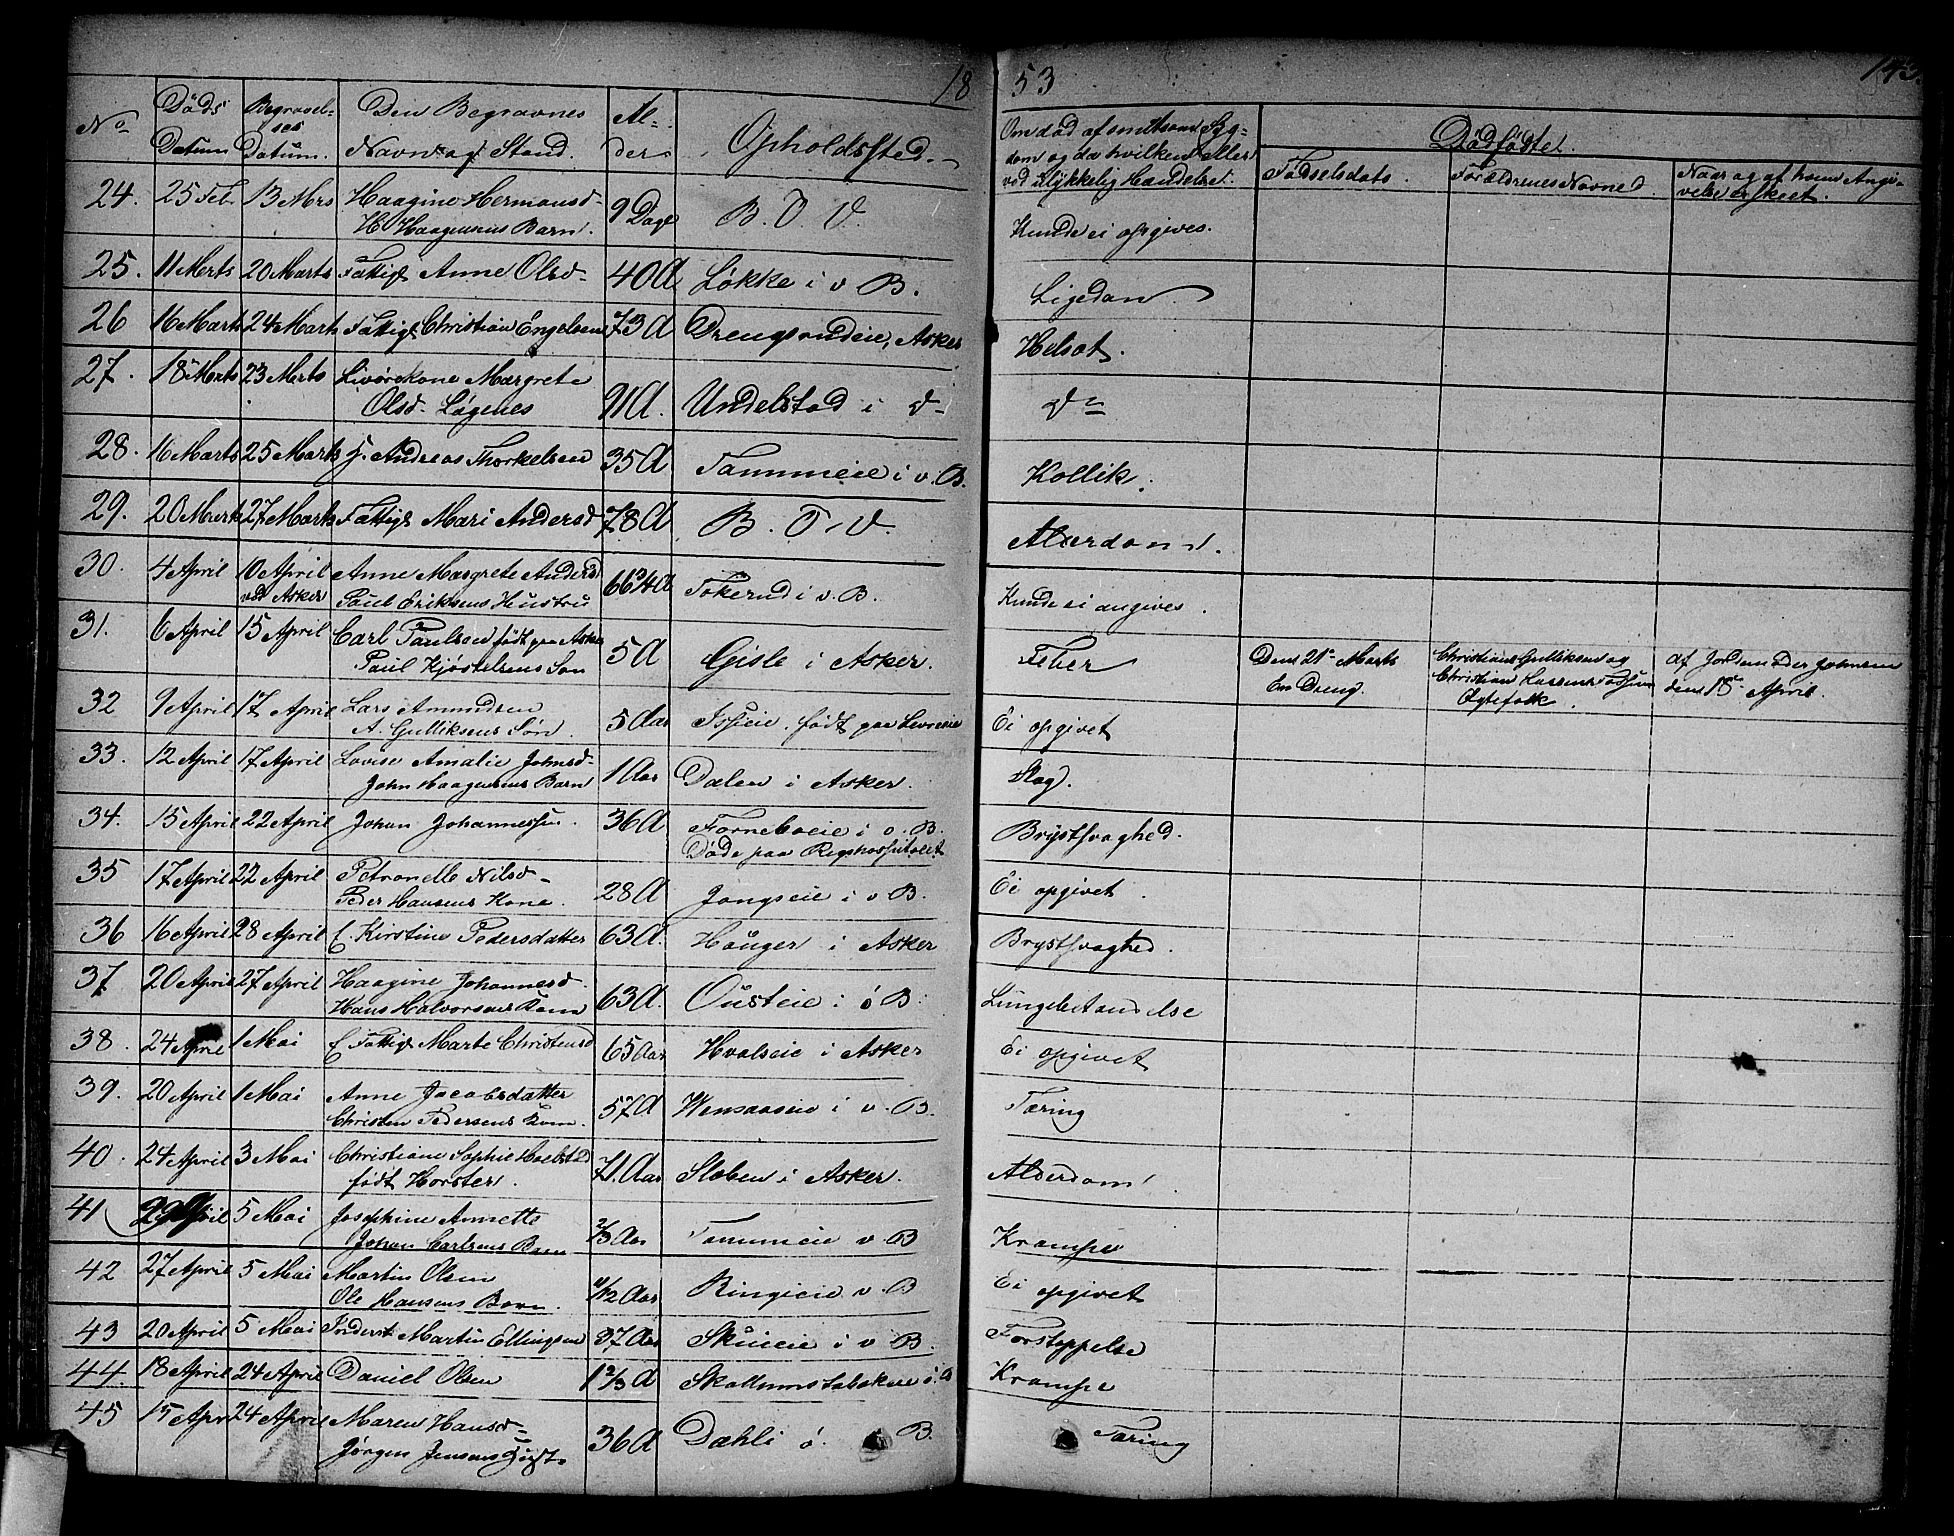 1853
143
No Døds Datum Begravelses Datum. Den Begravnes Navn og Stand. Alder Opholdssted. Om død af smitsom Sygdom og da hvilken eller ved ulykkelig Hændelse. Dødfødte.
Fødselsdato. Forældrenes Navne. Naar og af hvem Angivelse er skeet.
24. 25 Feb. 13 Mrs Haagine Hermansd- 9 Dage B. O. V. Kunde ei opgives.
H. Haagensens Barn.
25. 11 Marts 20 Marts Fattigl Anne Olsd- 40 A Løkke i v B. Ligedan
26 16 Marts 24 Marts Fattigl Christian Engelsen 73 A Drengsrudeie, Asker Helsot.
27. 18 Marts 23 Marts Livørekone Margrete 91 A. Undelstad i d- do
Olsd. Løgenes
28. 16 Marts 25 Marts J. Andreas Thorkelsen 35 A Tammeie i v. B. Kollik.
29. 20 Marts 27 Marts Fattigl Mari Andersd 78 A B. O. V. Alderdom.
30. 4 April 10 April Anne Margrete Andersd 66 3/4 A Tokerud i v. B. Kunde ei angives.
ved Asker Paul Eriksens Hustru
31. 6 April 15 April Carl Paulsen født paa Asker 5 A Gisle i Asker. Feber Den 21de Marts Christiane Gulliksen og af Jordemoder Johnsen
Paul Kjøstelsens Søn En Dreng. Christian Fossum den 18de April.
Egtefolk.
32 9 April 17 April Lars Amundsen 5 Aar født paa Ei opgivet
A. Gulliksens Søn.
33. 12 April 17 April Lovise Amalie Johnsd- 1 Aar Dalen i Asker. Slag.
John Haagensens Barn
34. 15 April 22 April Johan Johannessen. 36 A Forneboeie i v. B. Brystsvaghed.
Døde paa Rigshospitalet
35 17 April 22 April Petronelle Nilsd- 28 A Jongseie i v B. Ei opgivet
Peder Hansens Kone.
36 16 April 28 April f Kirstine Pedersdatter 63 A. Hauger i Asker Brystsvaghed.
37 20 April 27 April Haagine Johannesd. 63 A. Ousteie i ø B. Lungebetændelse
Hans Halvorsens Kone
38. 24 April 1 Mai f Fattigl Marte Christensd 65 Aar Hvalseie i Asker Ei opgivet
39. 20 April 1 Mai Anne Jacobsdatter 57 A i v. B. Tæring
Christen Pedersens Kone.
40. 24 April 3 Mai Christiane Sophie 71. Aar Slæben i Asker. Alderdom
født Horster.
41 29 April 5 Mai Josephine Annette 2/3 Aar Tammeie v. B Krampe
Johan Carlsens Barn
42 27 April 5 Mai Martin Olsen 4/12 Aar Ringieie v. B Ei opgivet
Ole Hansens Barn.
43 20 April 5 Mai Inderst Martin Ellingsen 37 Aar Skuieie i v B. Forstoppelse
44. 18 April 24 April Daniel Olsen 1 2/3 A Krampe
45 15 Apr 24 April Maren Hansd- 36 A Dæhli ø. B. Tæring
Jørgen Jensens